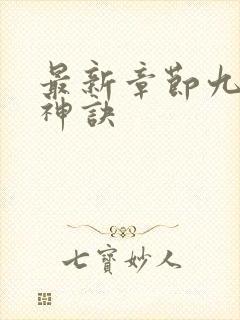 最新章節九
神訣
七寶妙人